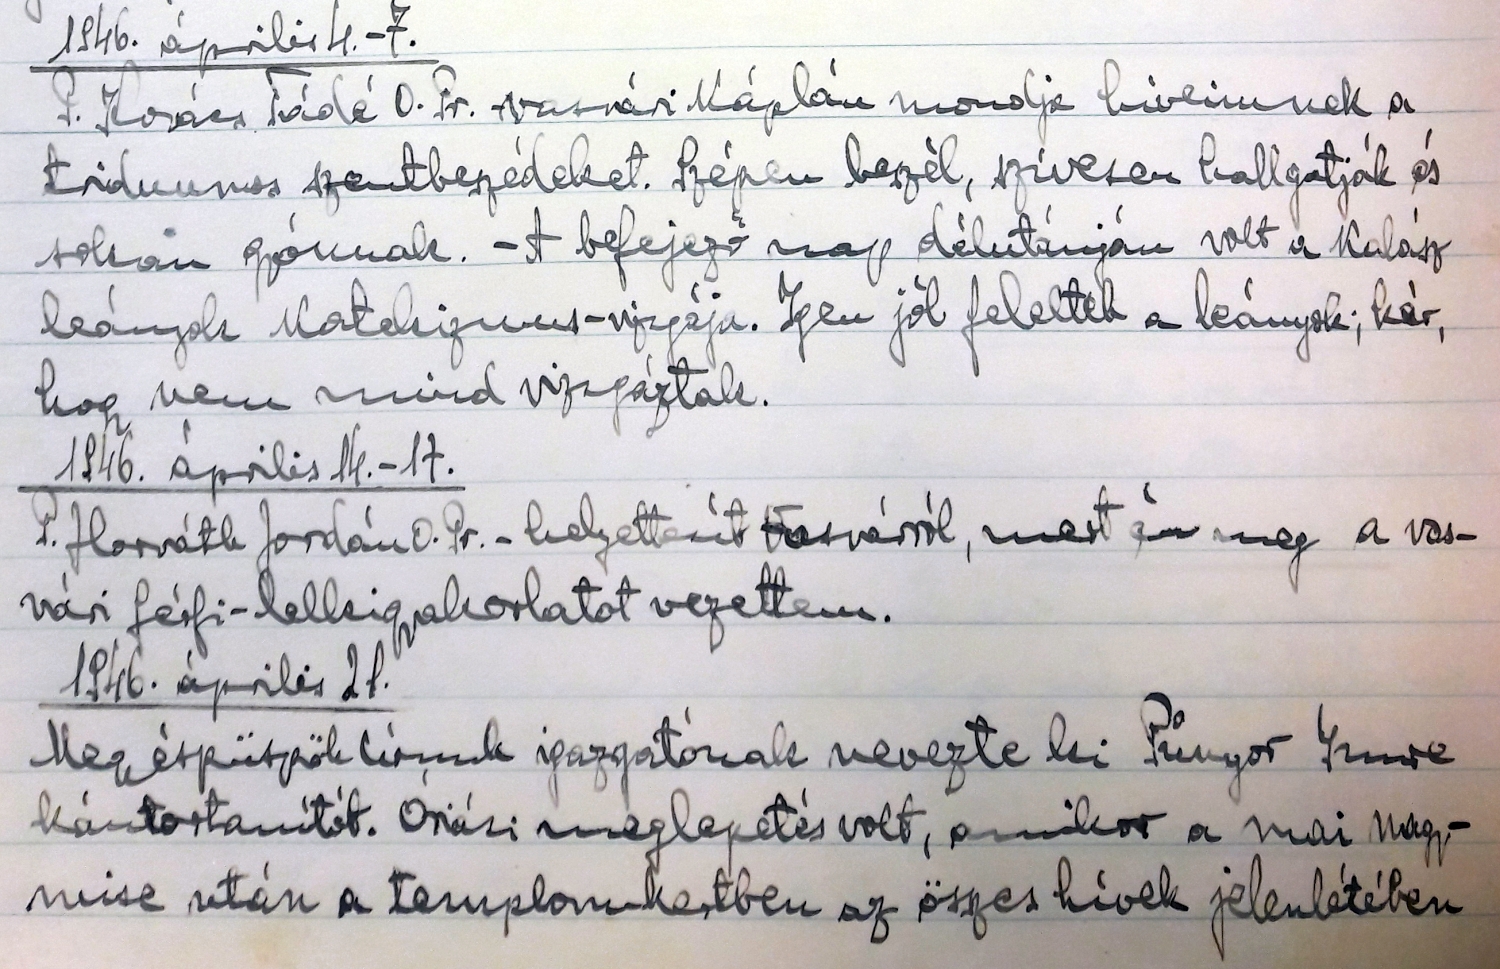 1946. április 4.-7.
P. Kovács Tádé O. Pr. vasvári káplán mondja hiveimnek a
triduumos szentbeszédeket. Szépen beszél, szívesen hallgatják és
sokan gyónnak. - A befejező nap délutánján volt a Kalász
leányok Katekizmus-vizsgája. Igen jól feleltek a leányok; kár,
hogy nem mind vizsgáztak.
1946. április 14.-17.
P. Horváth Jordán O. Pr. - helyettesít Vasvárról, mert én meg a vas-
vári férfi-lelkigyakorlatot vezettem.
1946. április 21.
Megyéspüspök igazgatónak nevezte ki Pungor Imre
kántortanítót. Óriási meglepetés volt, amikor a mai nagy-
mise után a templomkertben az összes hívek jelenlétében